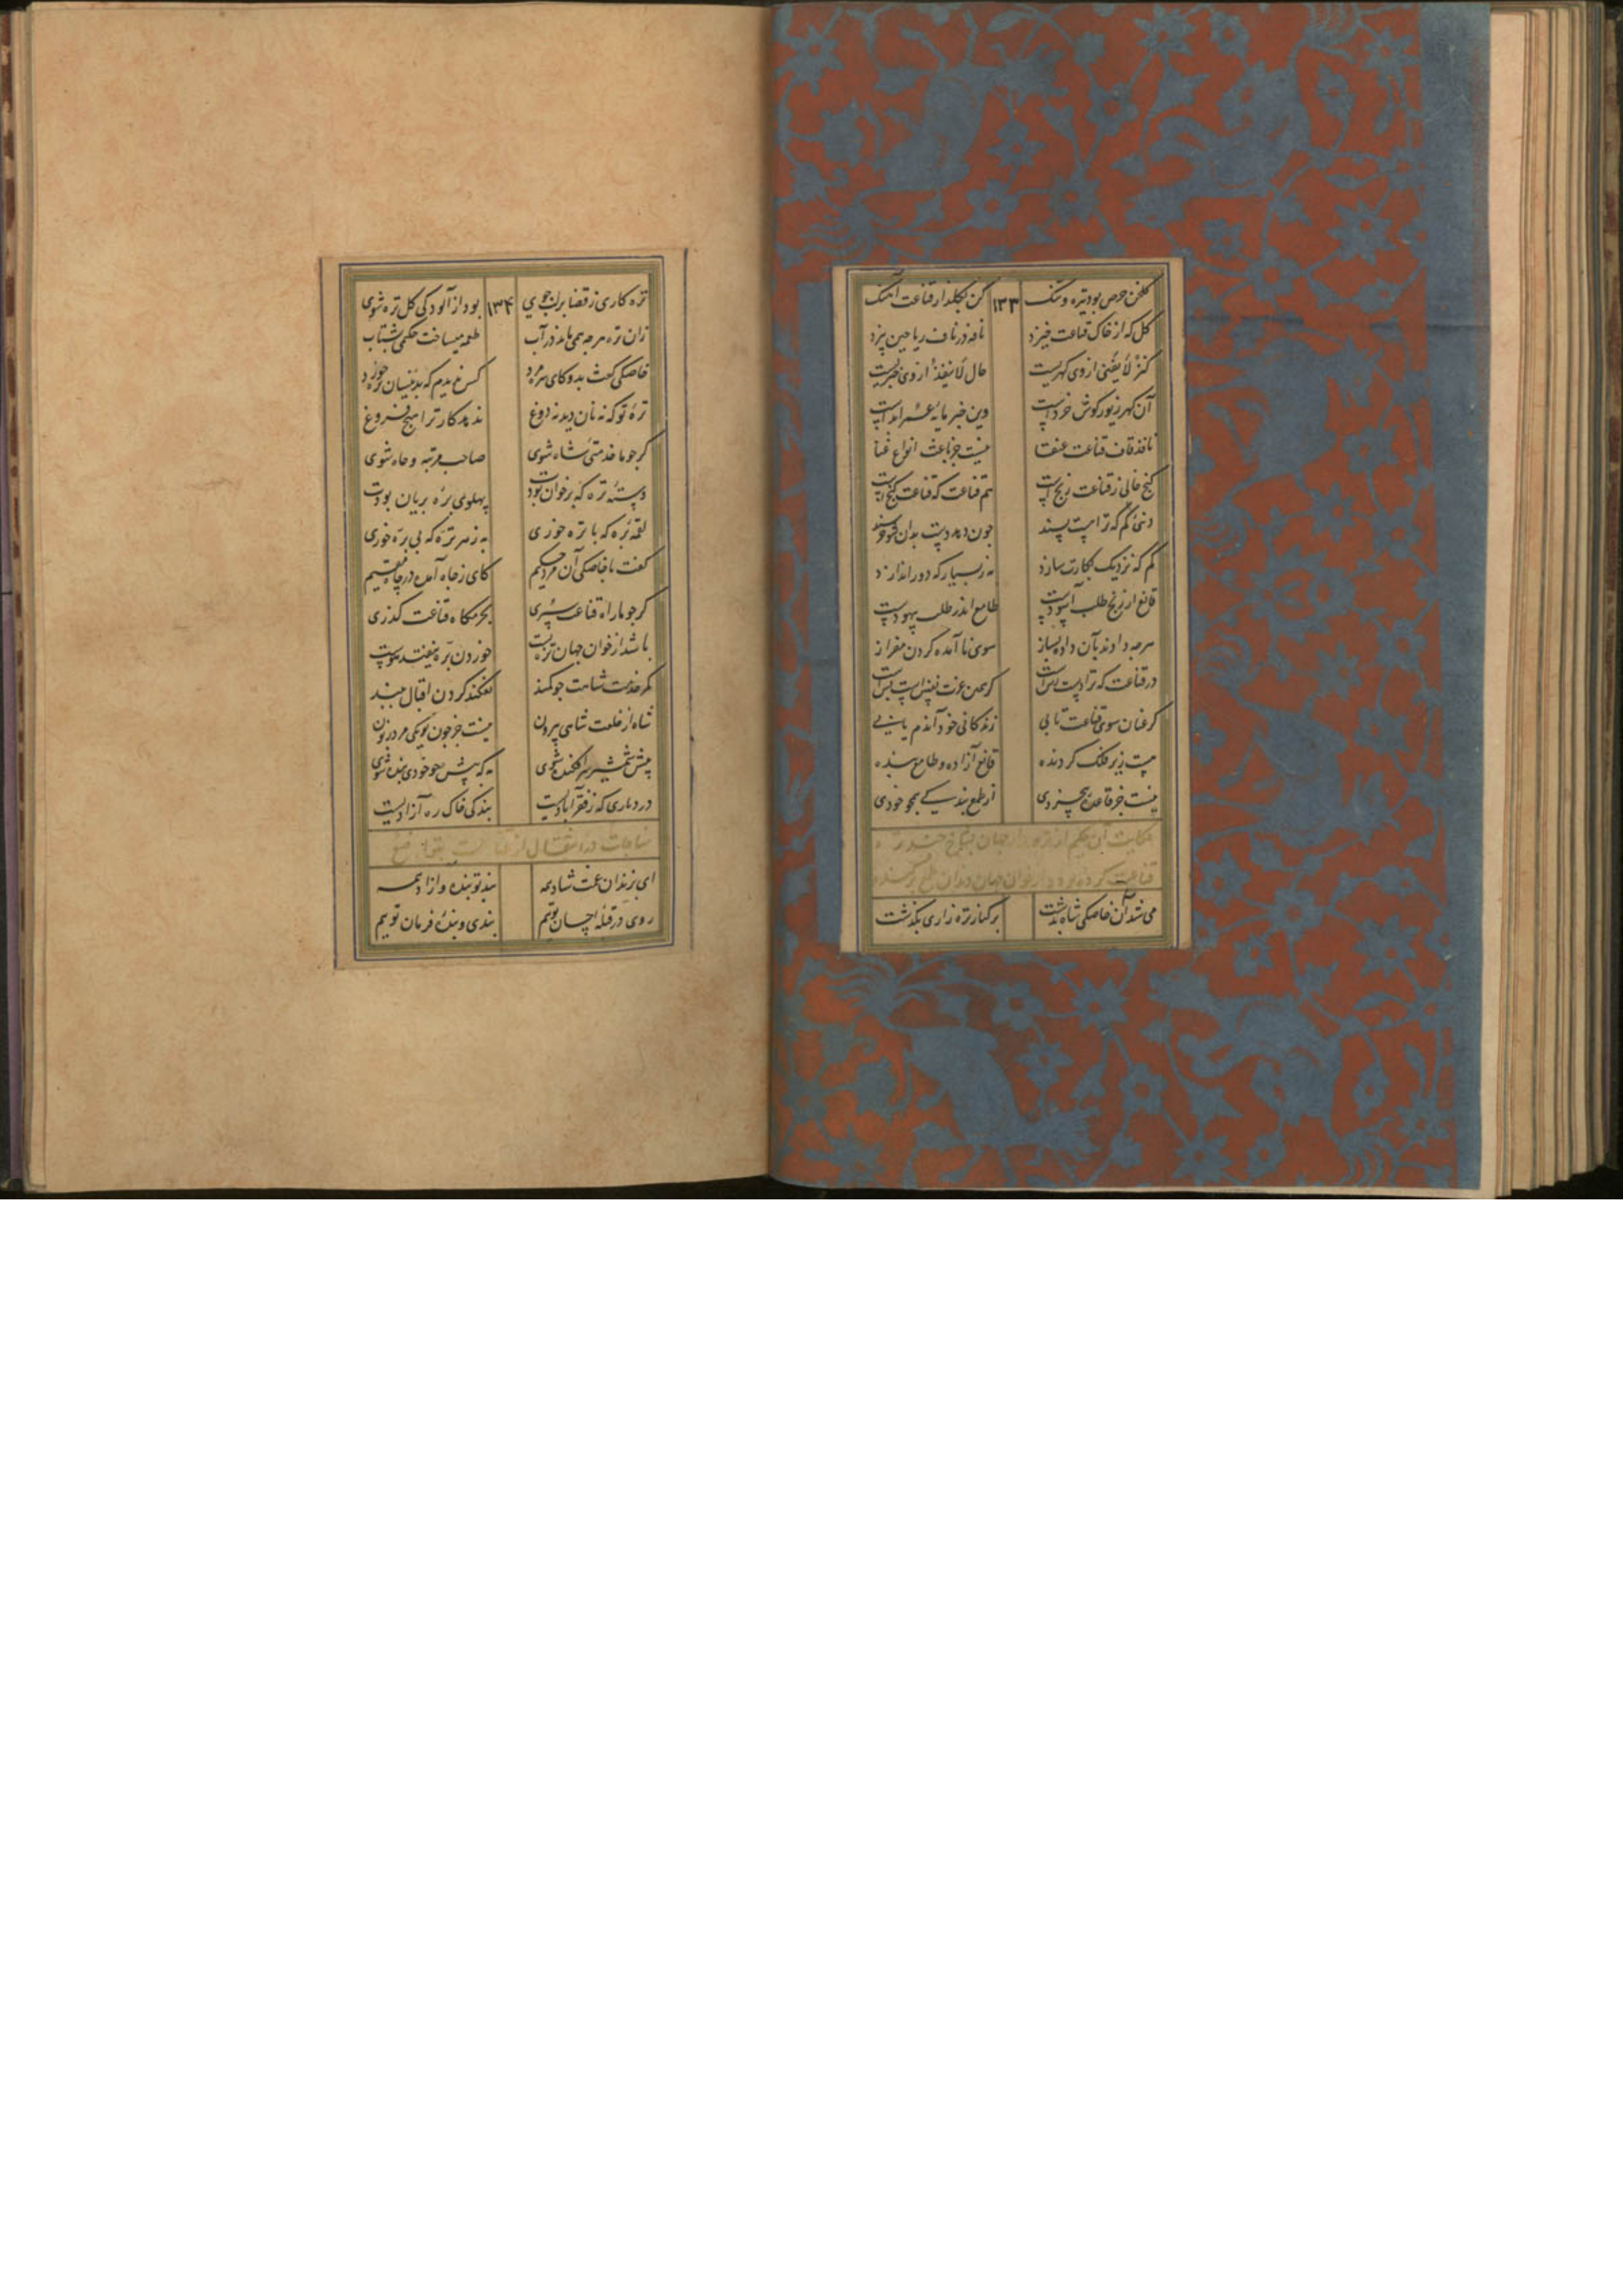 گلخن حرص بود تیره و تنگ ۱۳۳ کن بگلزار قناعت آهنگ
گل که از خاک قناعت خیزد نافه در ناف ریاحین بیزد
کنز لا یفنی از وی گهریست حال لا ینفد از وی خبریست
آن گهر زیور گوش خرد است وین خبر مایهٔ عمر ابد است
نافد قاف قناعت عنقا نیست جز باعث انواع غنا
گنج خالی ز قناعت رنج است هم قناعت که قناعت گنج است
دنیی کم که ترا هست پسند چون دهد دست بدان شو خرسند
کم که نزدیک بکارت سازد به ز بسیار که دور اندازد
قانع از رنج طلب آسوده‌ست طامع اندر طلب بیهوده‌ست
هرچه دادند بآن داده بساز سوی ناآمده گردن مفراز
در قناعت که ترا دسترس است گر همین عزت نفس است بس است
گر عنان سوی قناعت تابی زندگانی خود آندم یابی
هست زیر فلک گردنده قانع آزاده و طامع بنده
نیست جز قاعدهٔ بیخردی از طمع بندگی همچو خودی
حکایت آن حکیم از تره زار جهان بتنگی خرسند
قناعت کرده بود و از خوان جهان دندان طمع بر کنده
می شد آن خاصگی شاه بدشت بر کنار تره زاری بگذشت
تره کاری ز قضا بر لب جوی ۱۳۴ بود از آلودگی گل تره شوی
زان تره هرچه همی ماند در آب طعمه میساخت حکیمی بشتاب
خاصگی گفت بدو کای سره مرد کس ندیدم که بدینسان تره خورد
ترهٔ تو که نه نان دید نه دوغ ندهد کار ترا هیچ فروغ
گر چو ما خدمتی شاه شوی صاحب مرتبه و جاه شوی
دستهٔ تره که بر خوان بودت پهلوی برهٔ بریان بودت
لقمهٔ بره که با تره خوری به ز هر تره که بی بره خوری
گفت با خاصگی آن مرد حکیم کای ز جاه آمده در چاه مقیم
گر چو ما راه قناعت سپری بحرمگاه قناعت گذری
باشد از خوان جهان تره بست خوردن بره نیفتد هوست
کمر خدمت شاهت چو کمند نفکند گردن اقبال ببند
شاه از خلعت شاهی بیرون نیست جز چون تو یکی مرد زبون
پیش شمشیر سر افکنده شوی به که پیش چو خودی بنده شوی
در دیاری که ز فقر آبادیست بندگی خاک ره آزادیست
مناجات در انتقال از قناعت بتواضع
ای بزندان غمت شاد همه بند تو بنده و آزاد همه
روی در قبلهٔ احسان توییم بندی و بندهٔ فرمان توییم